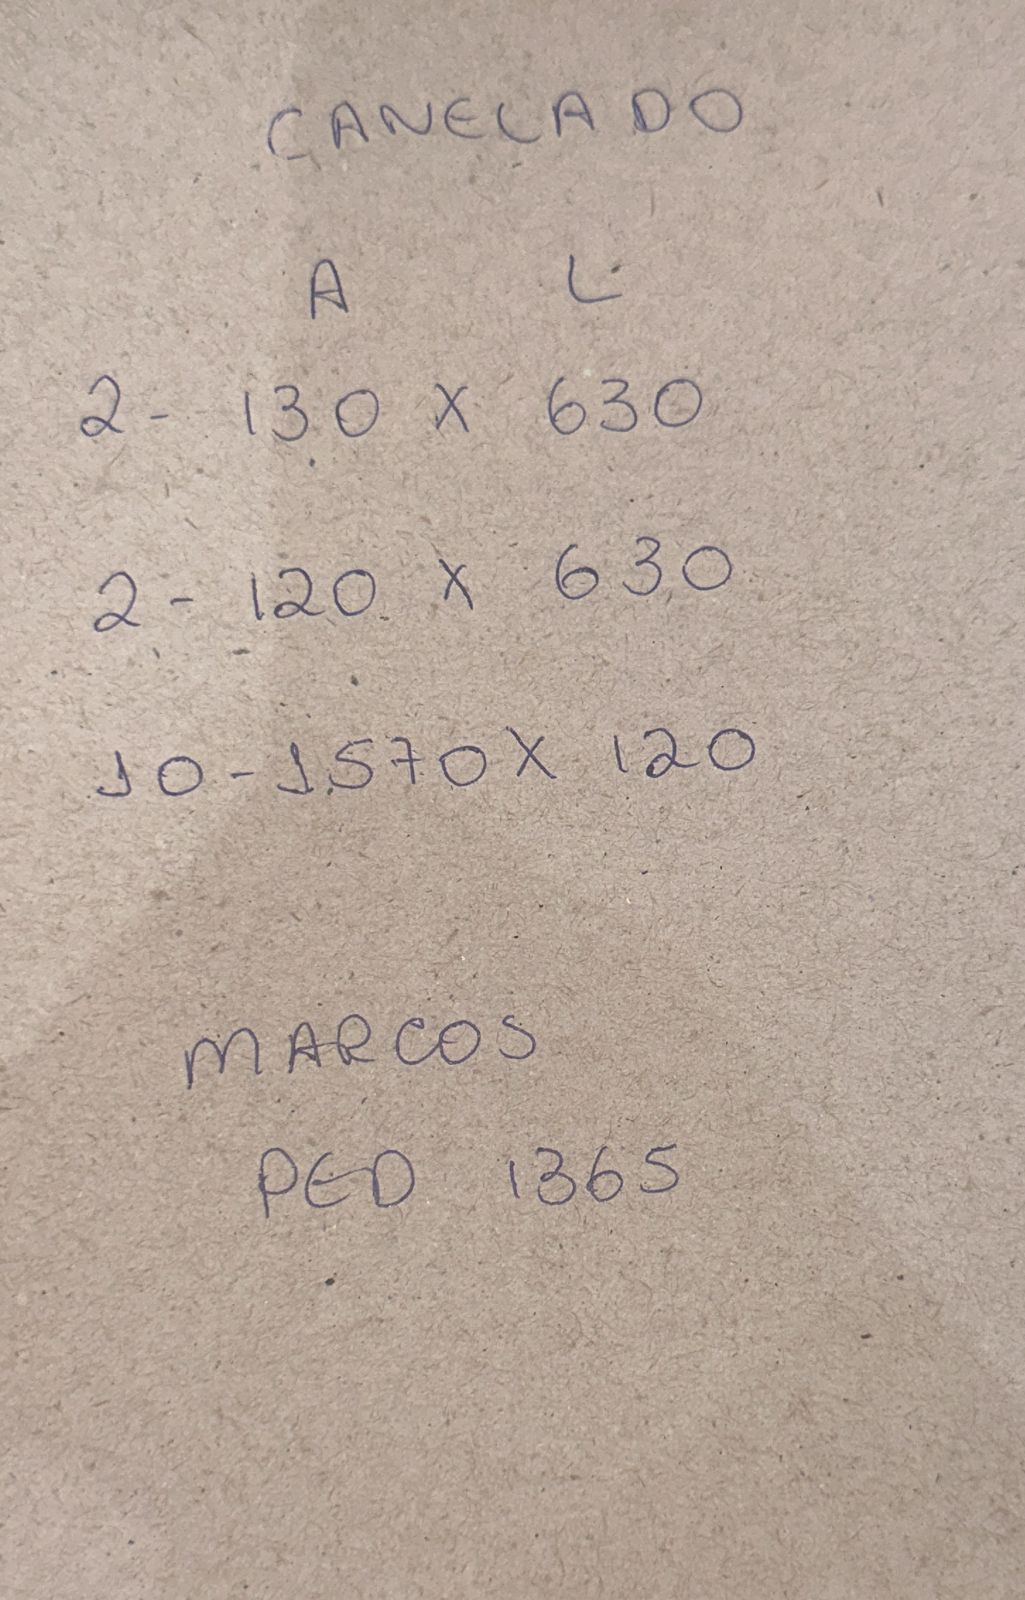 CANELADO
A L
2 - 130 X 630
2 - 120 X 630
10 - 1570 X 120
MARCOS
PED 1365